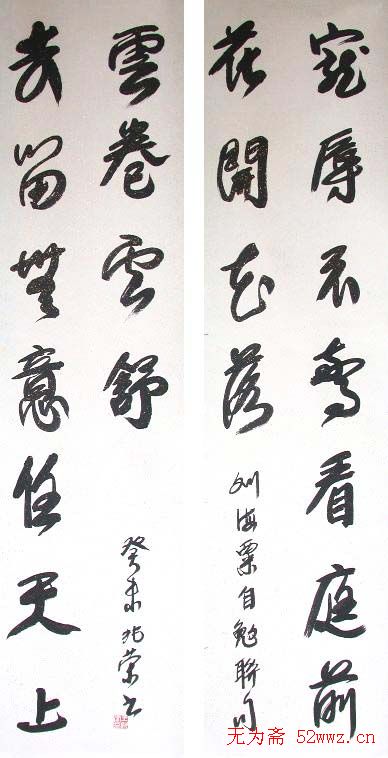 寵辱不驚看庭前
花開花落
刘海粟自勉聯句
去留無意任天上
雲卷云舒
癸未 榮书
无为斋 52wwz.cn